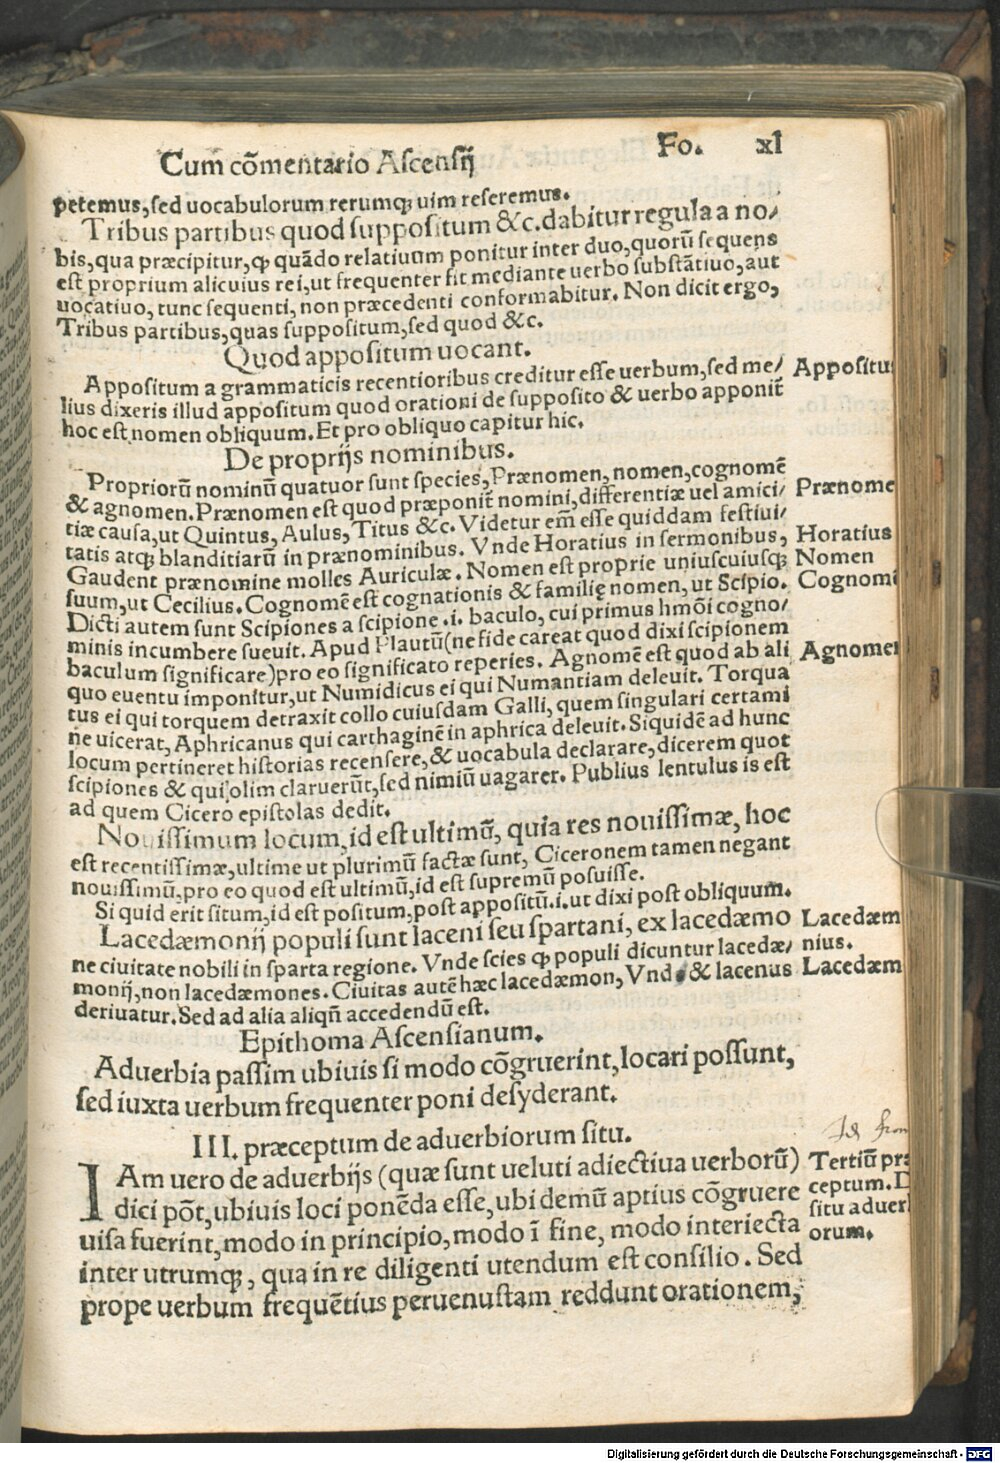 Cum cōmentario Ascensij Fo. xl
petemus, sed uocabulorum rerumq; uim referemus.
Tribus partibus quod suppositum &c. dabitur regula a no/
bis, qua præcipitur, ꝙ quādo relatiuum ponitur inter duo, quorū sequens
est proprium alicuius rei, ut frequenter fit mediante uerbo substātiuo, aut
uocatiuo, tunc sequenti, non præcedenti conformabitur. Non dicit ergo,
Tribus partibus, quas suppositum, sed quod &c.
Quod appositum uocant.
Appositum a grammaticis recentioribus creditur esse uerbum, sed me/
lius dixeris illud appositum quod orationi de supposito & uerbo apponit̄
hoc est nomen obliquum. Et pro obliquo capitur hic.
Appositu
De proprijs nominibus.
Propriorū nominū quatuor sunt species, Prænomen, nomen, cognomē
& agnomen. Prænomen est quod præponit̄ nomini, differentiæ uel amici/
tiæ causa, ut Quintus, Aulus, Titus &c. Videtur em̄ esse quiddam festiui/
tatis atq; blanditiarū in prænominibus. Vnde Horatius in sermonibus,
Gaudent prænomine molles Auriculæ. Nomen est proprie uniuscuiusq;
suum, ut Cecilius. Cognomē est cognationis & familię nomen, ut Scipio.
Dicti autem sunt Scipiones a scipione .i. baculo, cui primus hmōi cogno/
minis incumbere sueuit. Apud Plautū (ne fide careat quod dixi scipionem
baculum significare) pro eo significato reperies. Agnomē est quod ab ali
quo euentu imponitur, ut Numidicus ei qui Numantiam deleuit. Torqua
tus ei qui torquem detraxit collo cuiusdam Galli, quem singulari certami
ne uicerat, Aphricanus qui carthaginē in aphrica deleuit. Siquidē ad hunc
locum pertineret historias recensere, & uocabula declarare, dicerem quot
scipiones & qui olim claruerūt, sed nimiū uagarer. Publius lentulus is est
ad quem Cicero epistolas dedit.
Prænome
Horatius
Nomen
Cognomē
Agnomen
Nouissimum locum, id est ultimū, quia res nouissimæ, hoc
est recentissimæ, ultime ut plurimū factæ sunt, Ciceronem tamen negant
nouissimū, pro eo quod est ultimū, id est supremū posuisse.
Si quid erit situm, id est positum, post appositū .i. ut dixi post obliquum.
Lacedæmonij populi sunt laceni seu spartani, ex lacedæmo
ne ciuitate nobili in sparta regione. Vnde scies ꝙ populi dicuntur lacedæ/
monij, non lacedæmones. Ciuitas autē hæc lacedæmon, Vnde & lacenus
deriuatur. Sed ad alia aliqn̄ accedendū est.
Lacedæm
nius.
Lacedæm
Epithoma Ascensianum.
Aduerbia passim ubiuis si modo cōgruerint, locari possunt,
sed iuxta uerbum frequenter poni desyderant.
III. præceptum de aduerbiorum situ.
IAm uero de aduerbijs (quæ sunt ueluti adiectiua uerborū)
dici pōt, ubiuis loci ponēda esse, ubi demū aptius cōgruere
uisa fuerint, modo in principio, modo ī fine, modo interiecta
inter utrumq;, qua in re diligenti utendum est consilio. Sed
prope uerbum frequētius peruenustam reddunt orationem,
Tertiū præ
ceptum. D
situ aduer
orum.
Digitalisierung gefördert durch die Deutsche Forschungsgemeinschaft - DFG